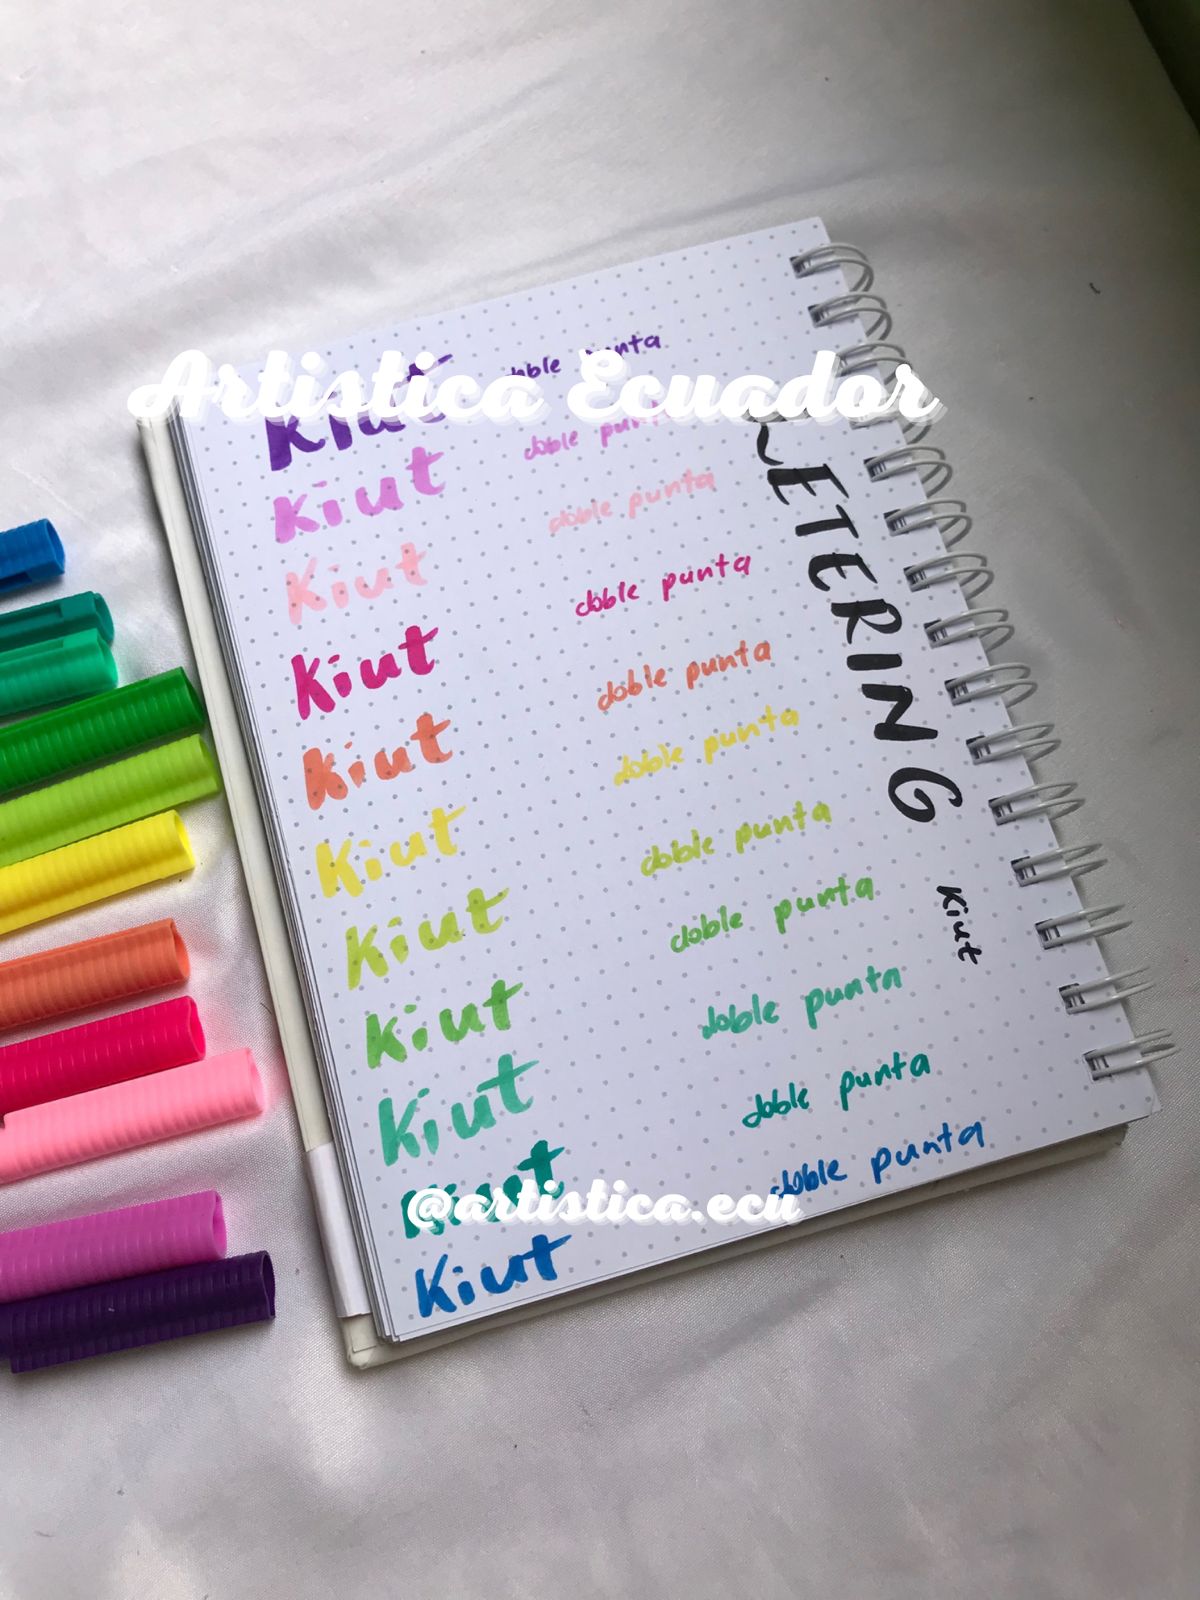 Artistica Ecuador
Kiut doble punta
Kiut doble punta
Kiut doble punta
Kiut doble punta
Kiut doble punta
Kiut doble punta
Kiut doble punta
Kiut doble punta
Kiut doble punta
Kiut doble punta
Kiut doble punta
LETERING Kiut
@artistica.ecu